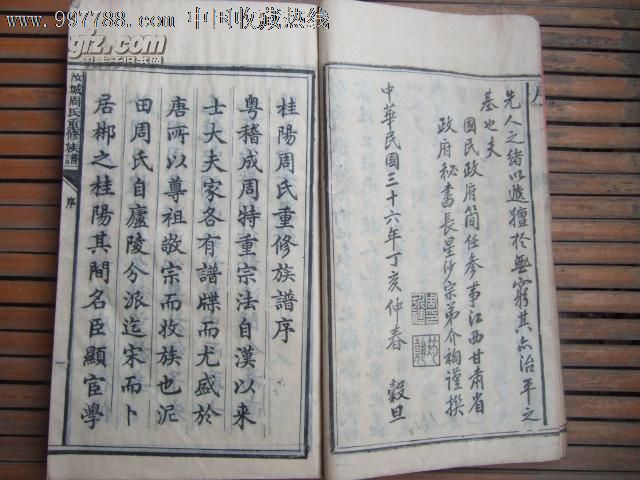 www.997788.com 中国收藏热线
先人之绪以遗擅於無窮其亦治平之
基也夫
國民政府简任参事江西甘肅省
政府秘書長星沙宗弟介裪謹撰
中華民國三十六年丁亥仲春 穀旦
汝城周氏重修族譜
序
桂陽周氏重修族譜序
粤稽成周特重宗法自漢以来
士大夫家各有譜牒而尤盛於
唐所以尊祖敬宗而收族也泥
田周氏自廬陵分派迄宋而卜
居郴之桂陽其間名臣顯宦學